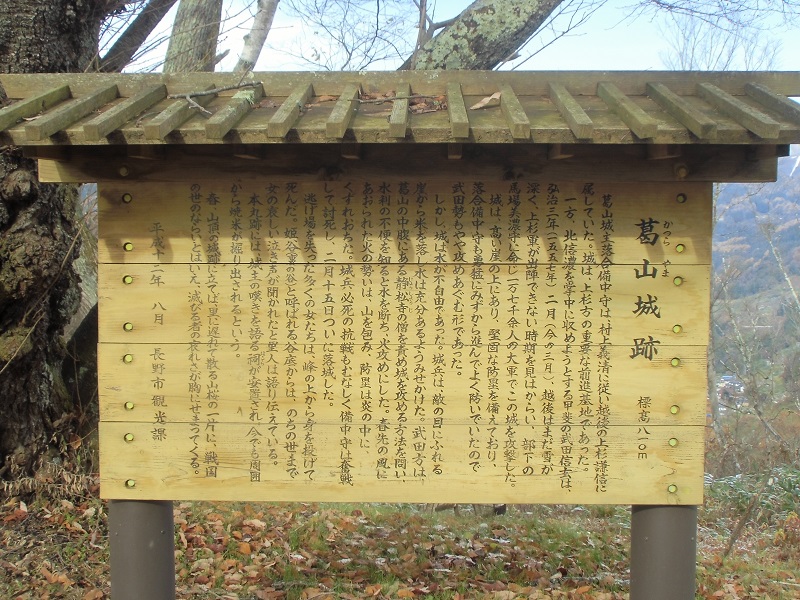 葛山城跡
かつら やま
標高八一〇m
葛山城主落合備中守は、村上義清に従い越後の上杉謙信に
属していた。城は、上杉方の重要な前進基地であった。
一方、北信濃を掌中に収めようとする甲斐の武田信玄は、
弘治三年(一五五七年)二月(今の三月)、越後はまだ雪が
深く、上杉軍が出陣できない時期を見はからい、部下の
馬場美濃守に命じ一万七千余人の大軍でこの城を攻撃した。
城は、高い崖の上にあり、堅固な防塁を備えており、
落合備中守も勇猛にみずから進んでよく防いでいたので
武田勢もやや攻めあぐむ形であった。
しかし、城は水が不自由であった。城兵は、敵の目にふれる
崖から米を落し水は充分あるようみせかけた。武田方は、
葛山の中腹にある静松寺の僧を責め城を攻める方法を問い、
水利の不便を知ると水を断ち、火攻めにした。春先の風に
あおられた火の勢いは、山を包み、防塁は炎の中に、
くずれおちた。城兵必死の抗戦もむなしく、備中守は奮戦
して討死し、二月十五日ついに落城した。
逃げ場を失った多くの女たちは、峰の上から身を投げて
死んだ。姫谷と呼ばれる谷底からは、のちの世まで
女の哀しい泣き声が聞かれたと里人は語り伝えている。
本丸跡には、城主の嘆きを語る祠が安置され、今でも周囲
から焼米が掘り出されるという。
春、山頂の城跡に立てば里に遅れて散る山桜の一片に、戦国
の世のならいとはいえ、滅びる者の哀れさが胸にせまってくる。
平成十二年 八月 長野市観光課